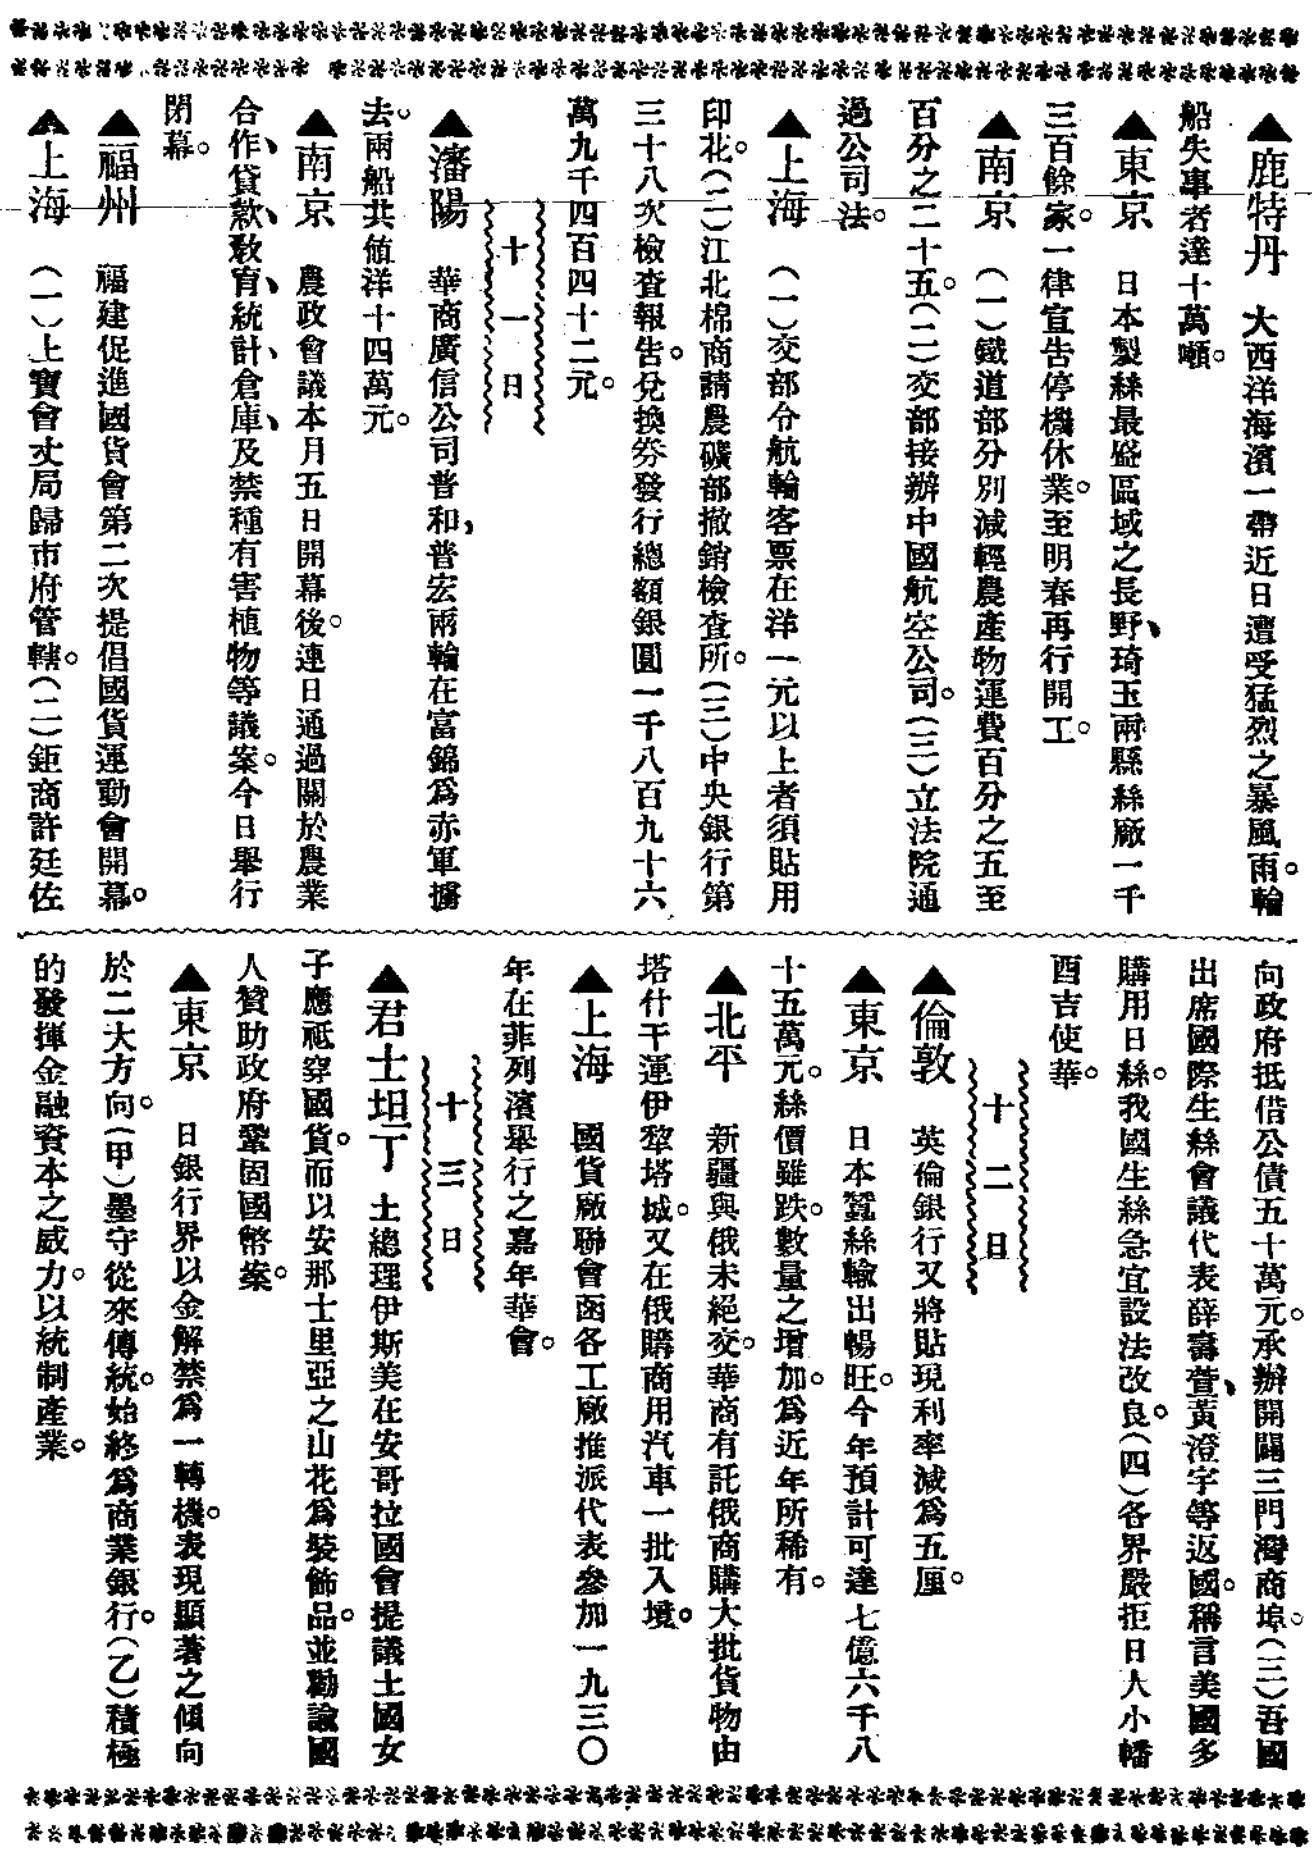 ▲鹿特丹　大西洋海濱一帶近日遭受猛烈之暴風雨。輪
船失事者達十萬噸。
▲東京　日本製絲最盛區域之長野、琦玉兩縣絲廠一千
三百餘家。一律宣告停機休業。至明春再行開工。
▲南京　(一)鐵道部分別減輕農產物運費百分之五至
百分之二十五。(二)交部接辦中國航空公司。(三)立法院通
過公司法。
▲上海　(一)交部令航輪客票在洋一元以上者須貼用
印花。(二)江北棉商請農礦部撤銷檢查所。(三)中央銀行第
三十八次檢查報告。兌換券發行總額銀圓一千八百九十六
萬九千四百四十二元。
十一日
▲瀋陽　華商廣信公司普和、普宏兩輪在富錦爲赤軍擄
去。兩船共値洋十四萬元。
▲南京　農政會議本月五日開幕後。連日通過關於農業
合作、貸款、敎育、統計、倉庫、及禁種有害植物等議案。今日舉行
閉幕。
▲福州　福建促進國貨會第二次提倡國貨運動會開幕。
▲上海　(一)上寶會丈局歸市府管轄。(二)鉅商許廷佐
向政府抵借公債五十萬元。承辦開闢三門灣商埠。(三)吾國
出席國際生絲會議代表薛壽萱、黃澄宇等返國。稱言美國多
購用日絲。我國生絲急宜設法改良。(四)各界嚴拒日人小幡
酉吉使華。
十二日
▲倫敦　英倫銀行又將貼現利率減爲五厘。
▲東京　日本蠶絲輸出暢旺。今年預計可達七億六千八
十五萬元。絲價雖跌。數量之增加。爲近年所稀有。
▲北平　新疆與俄未絕交。華商有託俄商購大批貨物由
塔什干運伊犂塔城。又在俄購商用汽車一批入境。
▲上海　國貨廠聯會函各工廠推派代表參加一九三〇
年在菲列濱舉行之嘉年華會。
十三日
▲君士坦丁　土總理伊斯美在安哥拉國會提議土國女
子應祗穿國貨。而以安那士里亞之山花爲裝飾品。並勸諭國
人贊助政府鞏固國幣案。
▲東京　日銀行界以金解禁爲一轉機。表現顯著之傾向
於二大方向。(甲)墨守從來傳統。始終爲商業銀行。(乙)積極
的發揮金融資本之威力。以統制產業。